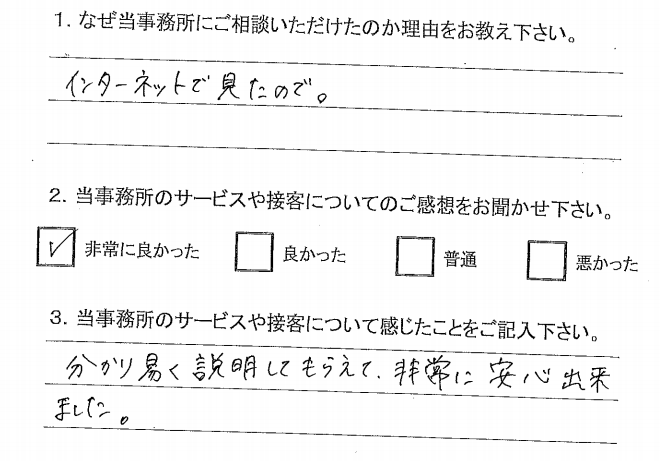 1. なぜ当事務所にご相談いただけたのか理由をお教え下さい。
インターネットで見たので。
2. 当事務所のサービスや接客についてのご感想をお聞かせ下さい。
非常に良かった 良かった 普通 悪かった
3. 当事務所のサービスや接客について感じたことをご記入下さい。
分かり易く説明してもらえて、非常に安心出来
ました。